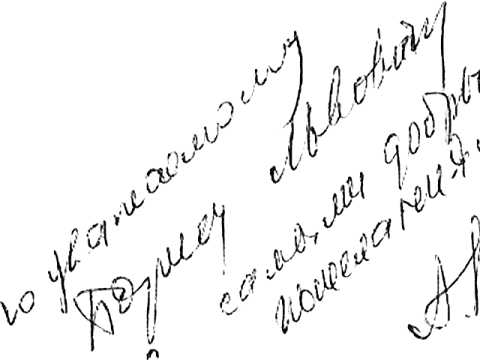 уважаемому
Борису Львовичу
самыми добры
пожелани
А.